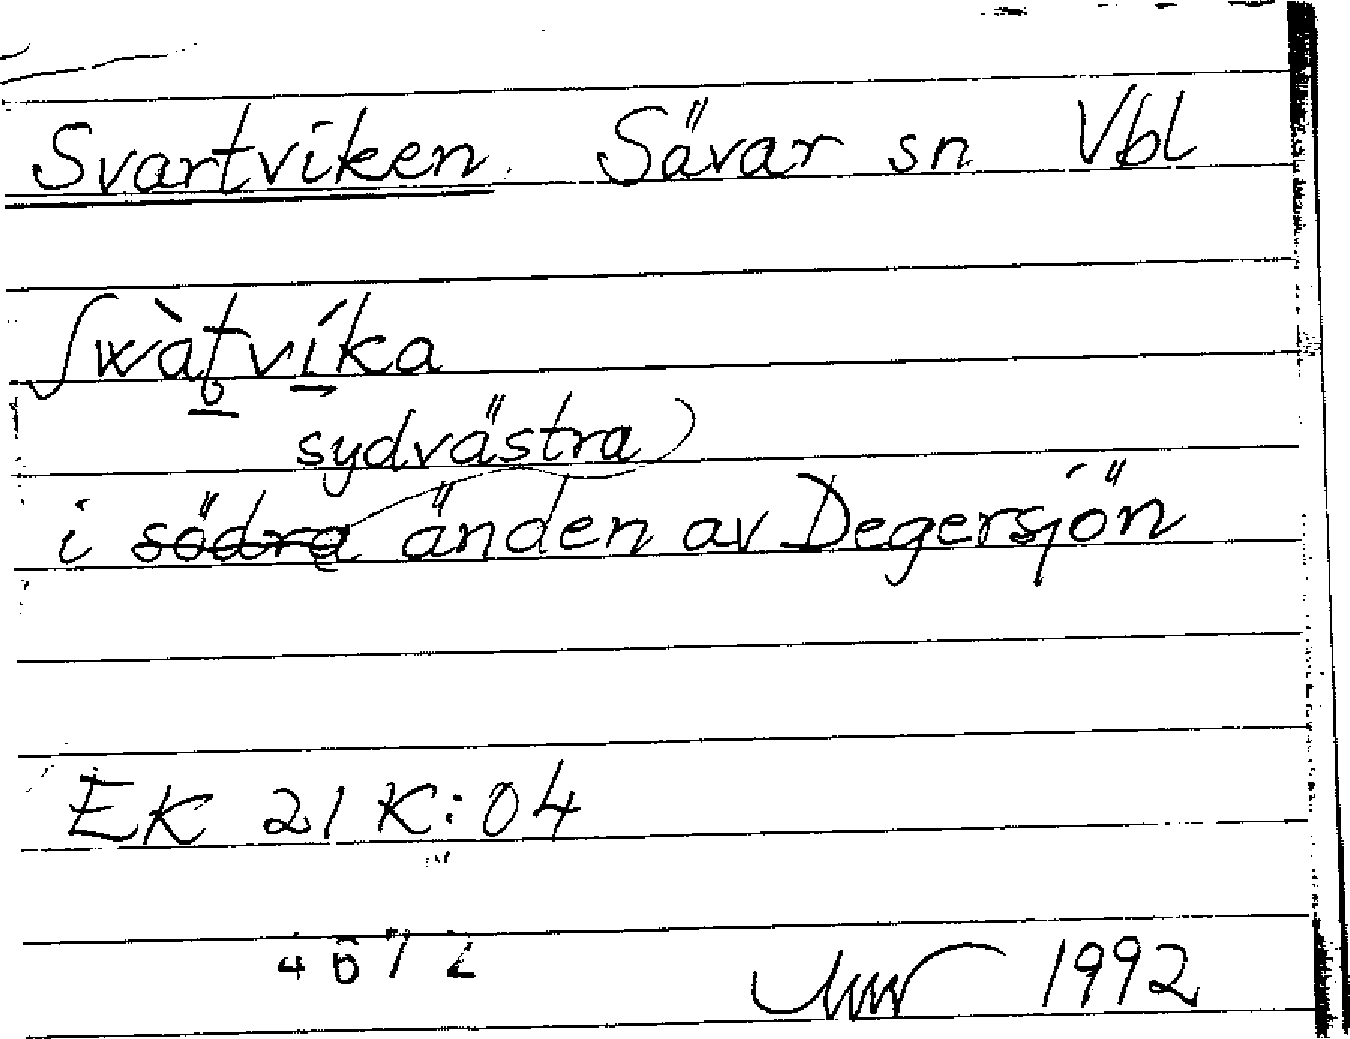 Svartviken. Sävar sn Vbl
ʃwàtvíka
sydvästra
i södra änden av Degersjön
EK 21 K:04
4672
1992